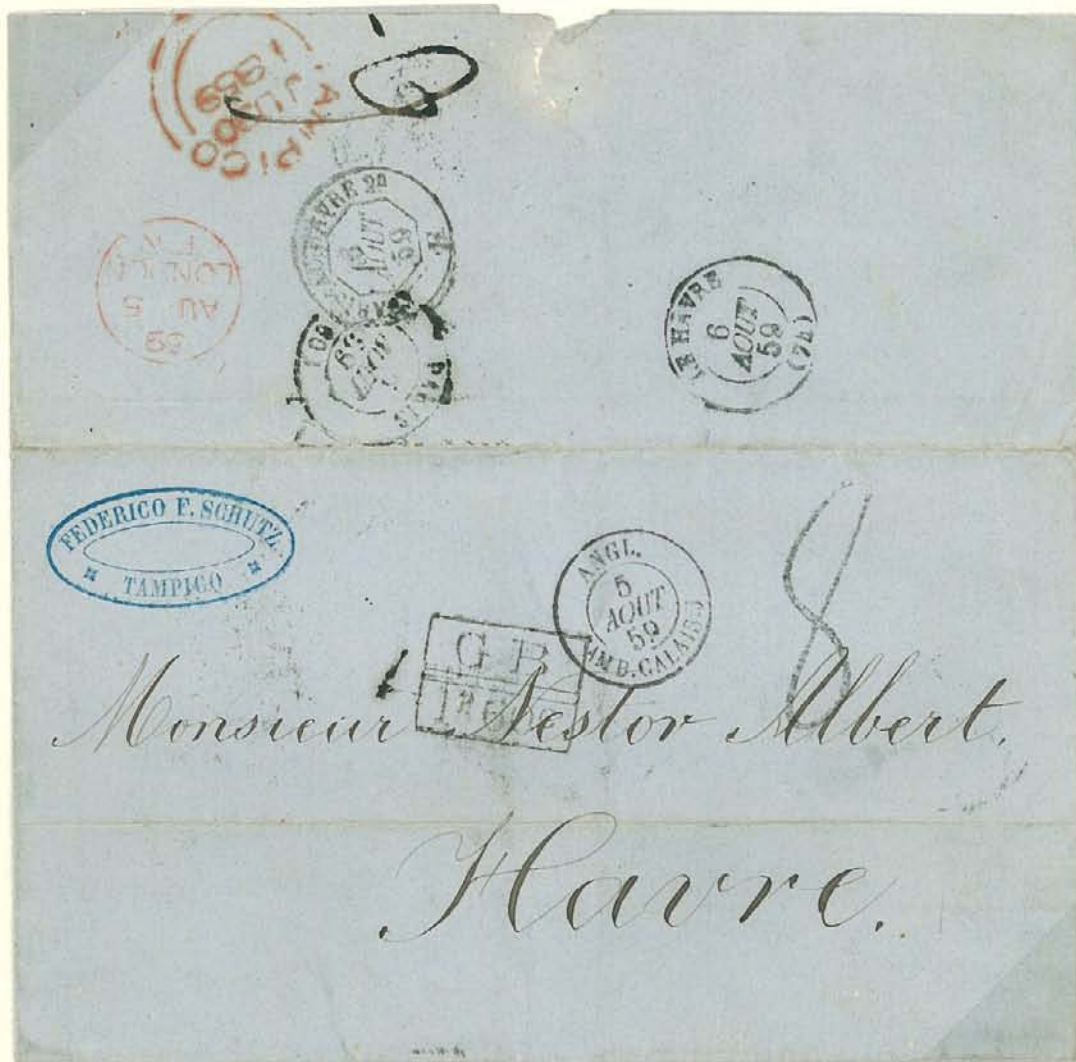 TAMPICO
JU
1859
59
AU 5
LONDON
AOUT
59
PARIS
AOUT
59
LE HAVRE
6
AOUT
59
(74)
FEDERICO F. SCHUTZ.
TAMPICO
ANGL.
5
AOUT
59
AMB. CALAIS
GB
8
Monsieur Nestor Albert.
Havre.